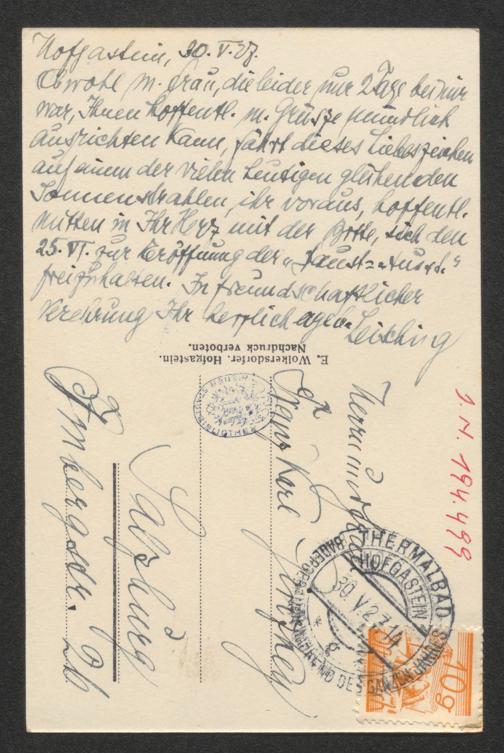 Hofgastein, 30. V. 27.
Obwohl m. Frau, die leider nur 2 Tage bei mir
war, Ihnen hoffentl. m. Grüsze mündlich
ausrichten kann, fährt dieses Liebeszeichen
auf einem der vielen heutigen glühenden
Sonnenstrahlen, ihr voraus, hoffentl.
mitten in Ihr Herz mit der Bitte, sich den
25. VI. zur Eröffnung der „Faust=Ausst."
freizuhalten. In freundschaftlicher
Verehrung Ihr herzlich ergeb. Leisching
E. Wolkersdorfer, Hofgastein.
Nachdruck verboten.
I. N. 194.499
Herrn
Karl
Salzburg
Imbergstr.
THERMALBAD
HOFGASTEIN
30 V 27
DES GANZEN JAHRES
10g